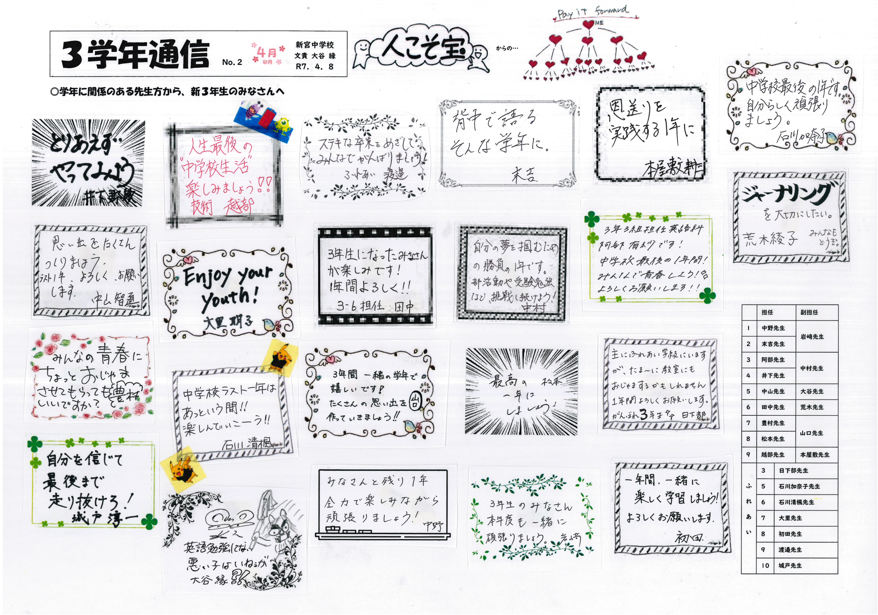 3学年通信
No.2
4月
新宮中学校
文責 大谷 縁
R7.4.8
人こそ宝
からの…
Pay it forward
ME
○学年に関係のある先生方から、新3年生のみなさんへ
とりあえず…
やってみよう
人生最後の
"中学校生活"
楽しみましょう!!
越部
ステキな卒業をめざして
みんなでがんばりましょう
渡邉
背中で語る
そんな学年に.
末吉
恩送りを
実践する1年に
本屋敷
中学校最後の1年です。
自分らしく頑張り
ましょう。
石川加奈子
ジャーナリング
を大切にしたい。
荒木綾子
みんなも
どうぞ。
思い出をたくさん
つくりましょう。
ラスト1年 よろしくお願い
します。
中山智恵
Enjoy your
youth!
大里 明子
3年生になったみなさん
が楽しみです!
1年間よろしく!!
3-6 担任 田中
自分の夢を掴むため
の勝負の1年です。
部活動や受験勉強
など、挑戦し続けよう!
中村
3年3組担任 英語科
阿部 です!
中学校最後の1年間!
みんなで青春しよう!
よろしくお願いします!!
みんなの青春に
ちょっとおじゃま
させてもらっても
いいですかで
豊村
中学校ラスト一年は
あっという間!!
楽しんでいこーう!!
石川 清楓
3年間一緒の学年で
嬉しいです?
たくさんの思い出を
作っていきましょう!!
山口
最高の
一年に
しましょう
松本
主にふれあい学級にいますが
たまーに教室にも
おじゃまするかもしれません
1年間よろしくお願いします。
がんばれ3年生 日下部
自分を信じて
最後まで
走り抜けろ!
城戸 淳一
英語勉強してない
悪い子はいねぇが
大谷 縁
みなさんと残り1年
全力で楽しみながら
頑張りましょう!
中野
3年生のみなさん
本年度も一緒に
頑張りましょう 岩崎
一年間、一緒に
楽しく学習しましょう!
よろしくお願いします.
初田
担任 副担任
1 中野先生 岩崎先生
2 末吉先生
3 阿部先生 中村先生
4 井下先生
5 中山先生 大谷先生
6 田中先生 荒木先生
7 豊村先生 山口先生
8 松本先生
9 越部先生 本屋敷先生
ふれあい
3 日下部先生
5 石川加奈子先生
6 石川清楓先生
7 大里先生
8 初田先生
9 渡邉先生
10 城戸先生